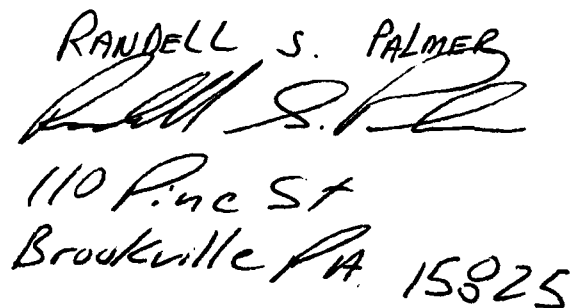 RANDELL S. PALMER
Randell S. Palmer
110 Pine St
Brookville PA. 15825